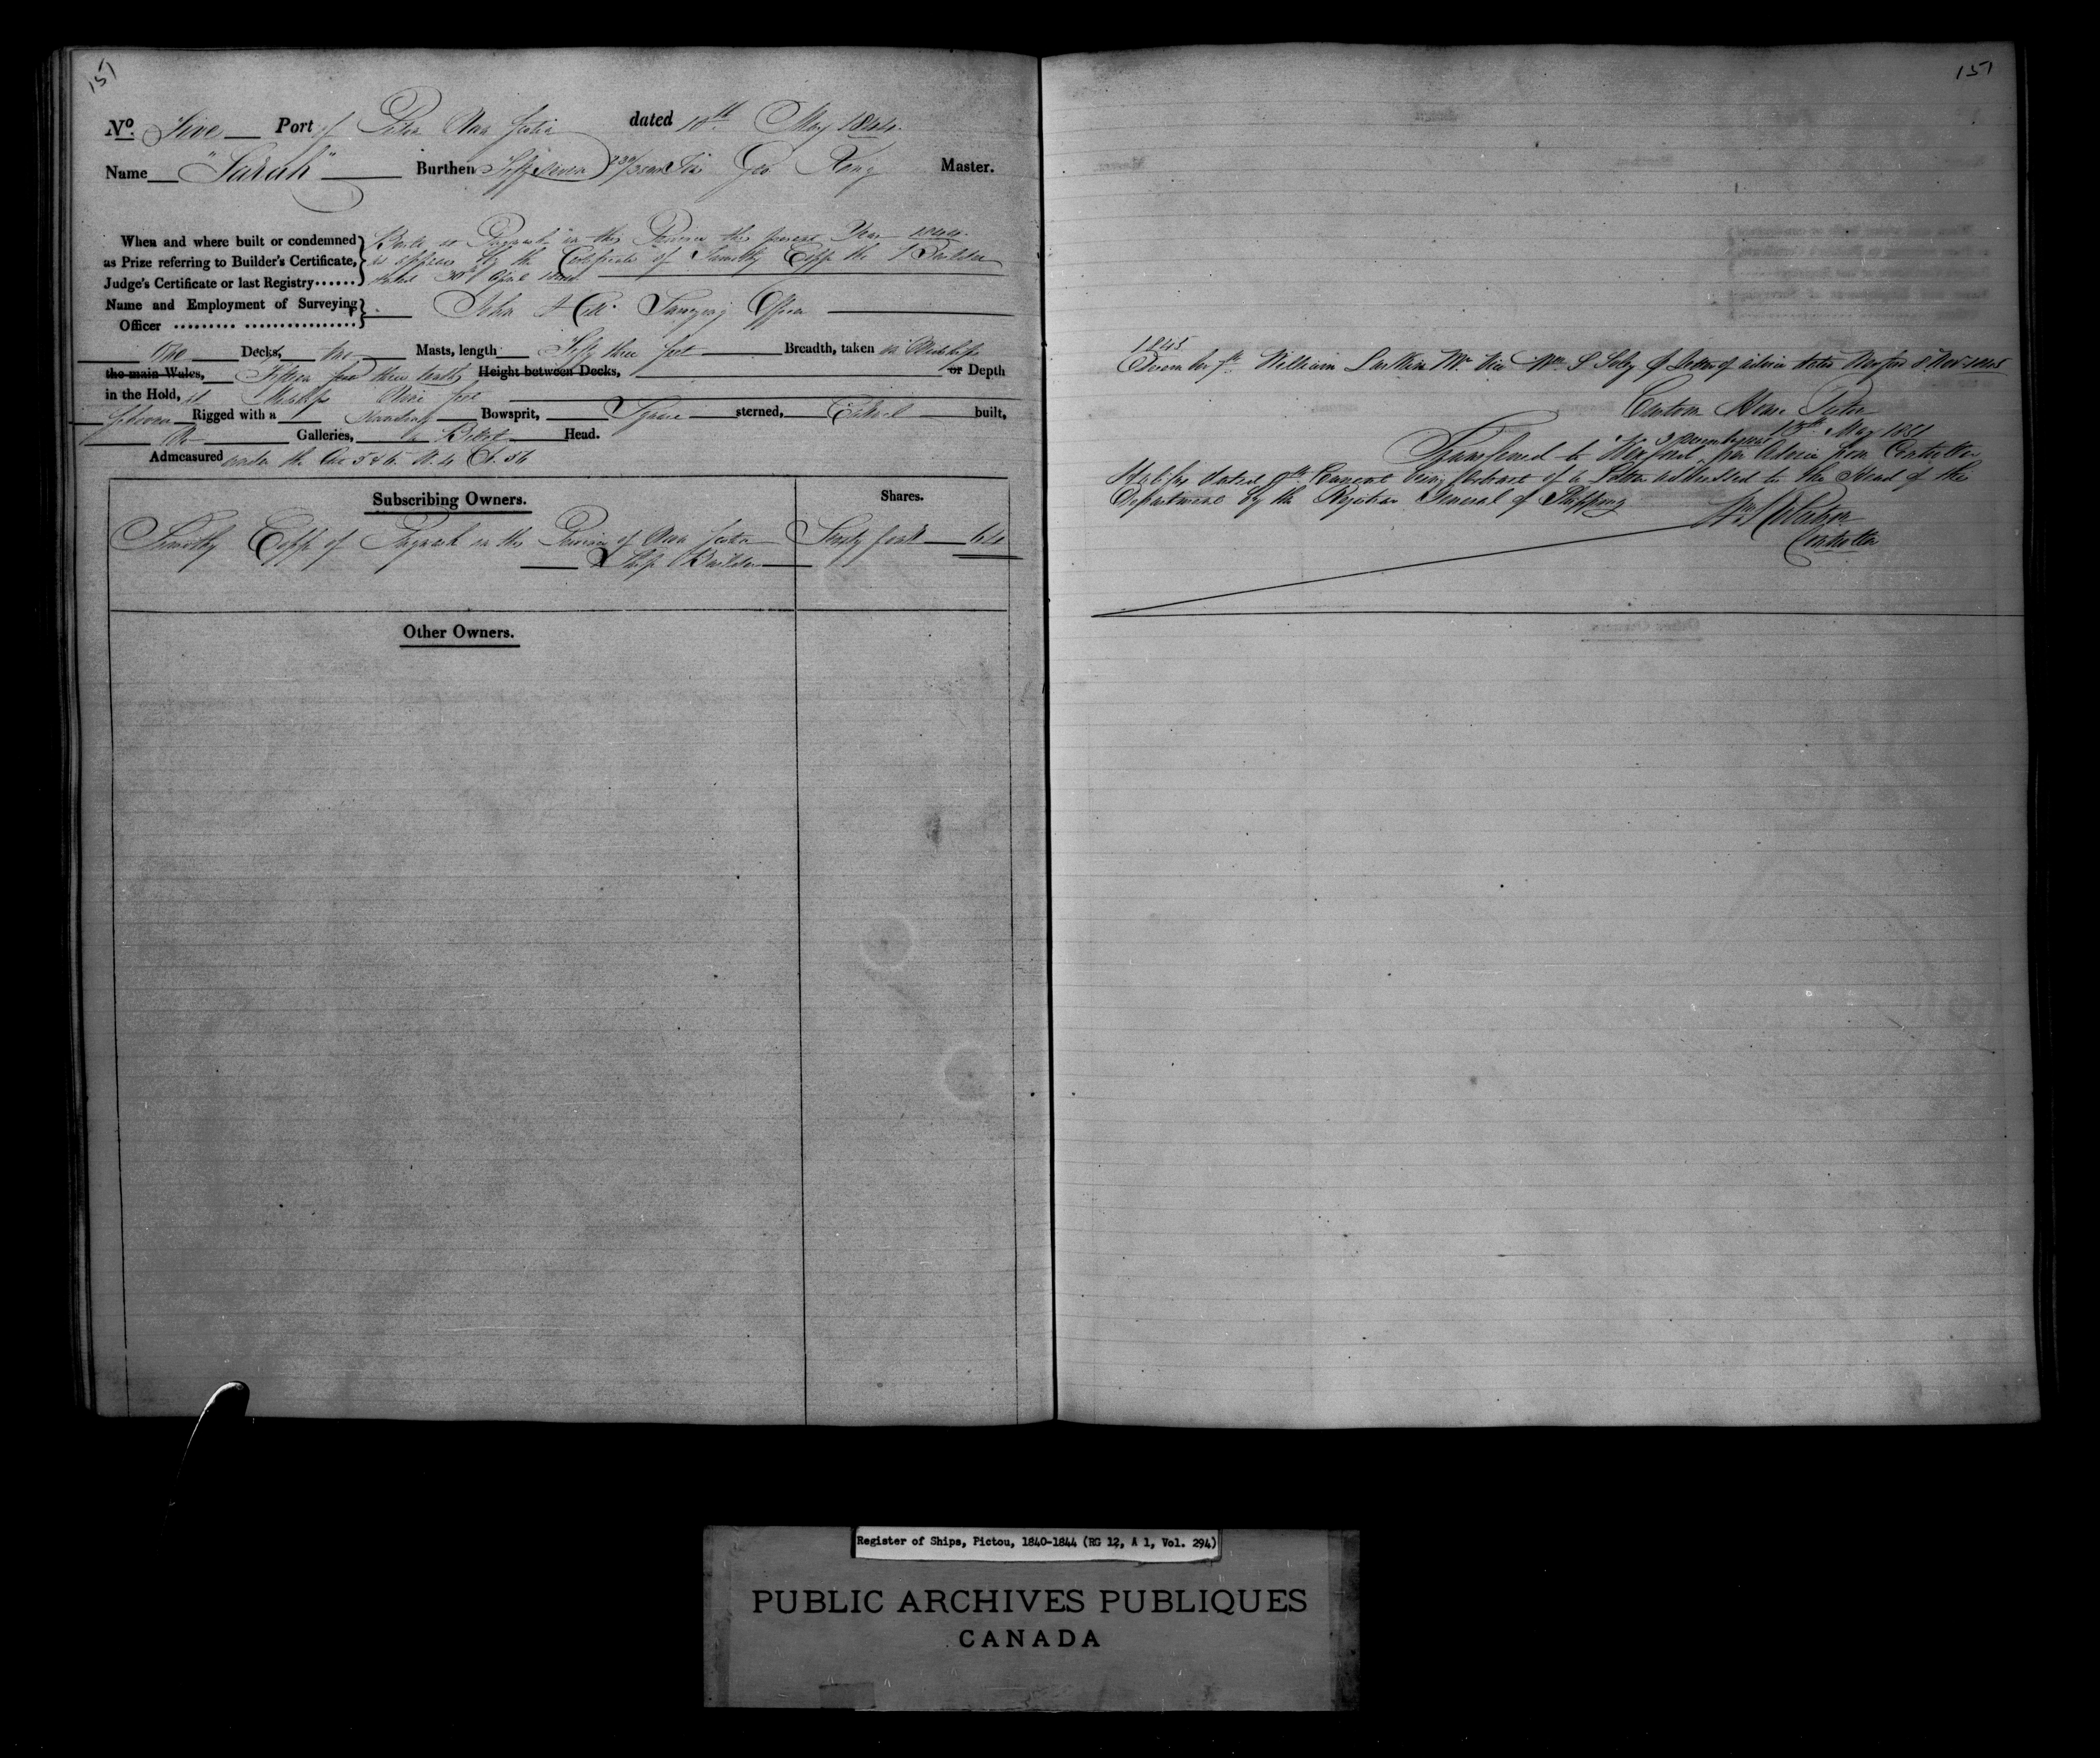 151
No. Five Port of Pictou Nova Scotia dated 10th May 1844.
Name "Sarah" Burthen Fifty Seven Geo Master.
When and where built or condemned
as Prize referring to Builder's Certificate,
Judge's Certificate or last Registry......
Built at Pugwash in this Province the present Year 1844.
as appears by the Certificate of Timothy Copp the Builder
dated 30th April 1844
Name and Employment of Surveying
Officer ......... ................
John Surveying Officer
One Decks, two Masts, length Fifty three feet Breadth, taken in Midships
the main Wales, Fifteen feet three tenths Height between Decks, or Depth
in the Hold, at Midships Nine feet
Schooner Rigged with a Standing Bowsprit, Square sterned, Carvel built,
No Galleries, a Billet Head.
Admeasured under the Act 5 & 6 W. 4 Ch. 56
Subscribing Owners. Shares.
Timothy Copp of Pugwash in the Province of Nova Scotia Sixty four 64
Ship Builder
Other Owners.
151
1845
December William Larkin Mr. Vice Wm. letter of advice dated Wexford 8 Nov 1845
Custom House Pictou
13th May 1851
Transferred to Wexford per Advice from Controller
Halifax dated Current being Extract of a Letter addressed to the Head of the
Department by the Registrar General of Shipping
Controller
Register of Ships, Pictou, 1840-1844 (RG 12, A 1, Vol. 294)
PUBLIC ARCHIVES PUBLIQUES
CANADA